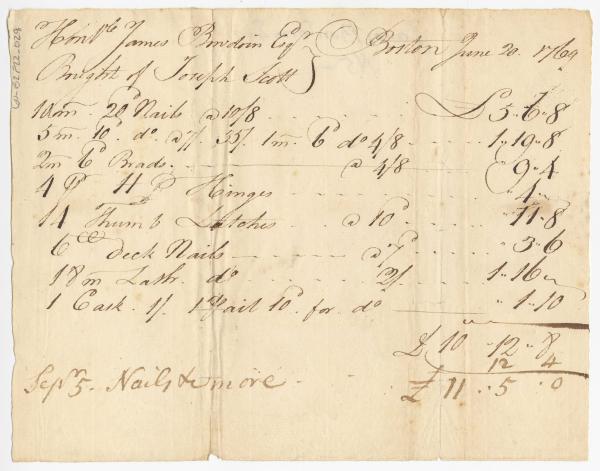 Honble James Bowdoin Esqr Boston June 20. 1769
Bought of Joseph Scott
10m. 20d Nails a 10/8 £5"6"8
5m. 10d. do a 7/. 35/. 1m. 6d do 4/8 1"19"8
2m 6d Brads. a 4/8 9"4
4 pr H Hinges 4"
14 Thumb Latches a 10d 11"8
6 Deck Nails a 7d 3"6
18m Lathg do 2/. 1"16"
1 Cask 1/. 1 10d for do "1"10
£10"12"8
12 4
£11"5"0
Sepr 5. Nails & more